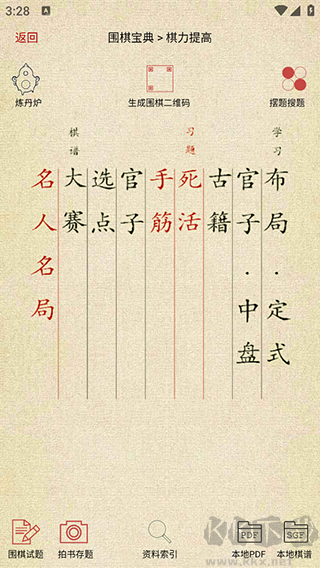 3:28
返回
围棋宝典 > 棋力提高
炼丹炉
生成围棋二维码
摆题搜题
学习
习题
棋谱
布局．定式
官子．中盘
古籍
死活
手筋
官子
选点
大赛
名人名局
围棋试题
拍书存题
资料索引
PDF
本地PDF
SGF
本地棋谱
www.kkx.net